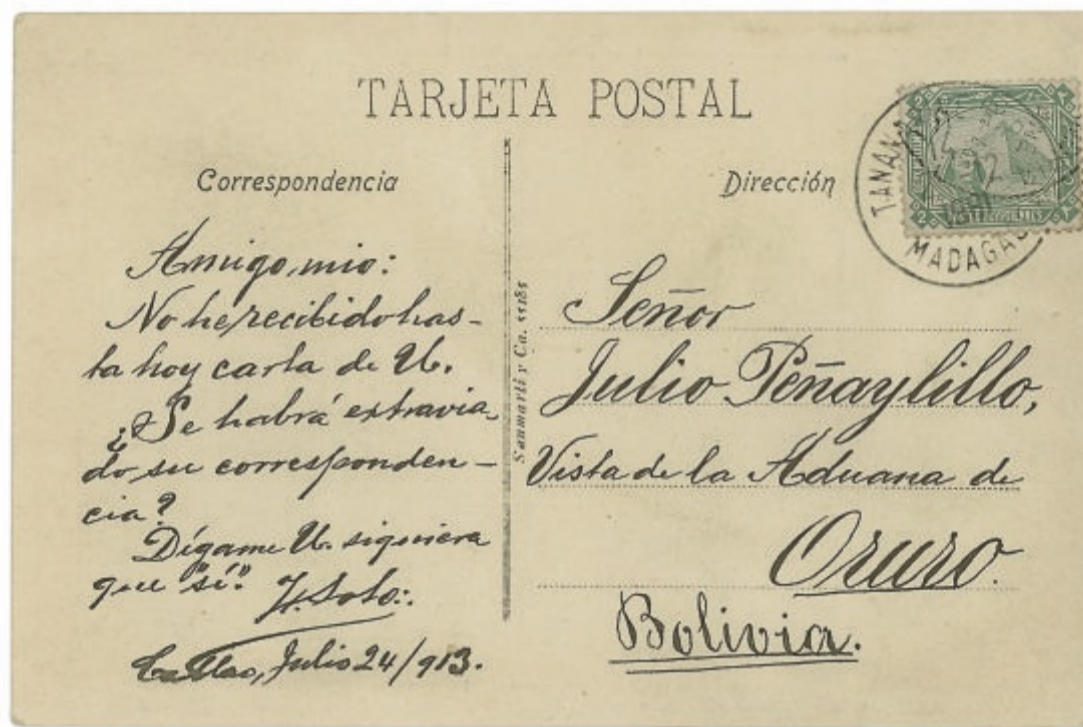 TARJETA POSTAL
Correspondencia
Amigo mio:
No he recibido has-
ta hoy carta de U.
¿Se habrá extravia
do su corresponden-
cia?
Dígame U. siquiera
que "sí."
J. Soto:.
Callao, Julio 24/913.
Sanmarti y Ca. 55185
Dirección
Señor
Julio Peñaylillo,
Vista de la Aduana de
Oruro.
Bolivia.
MADAGAS